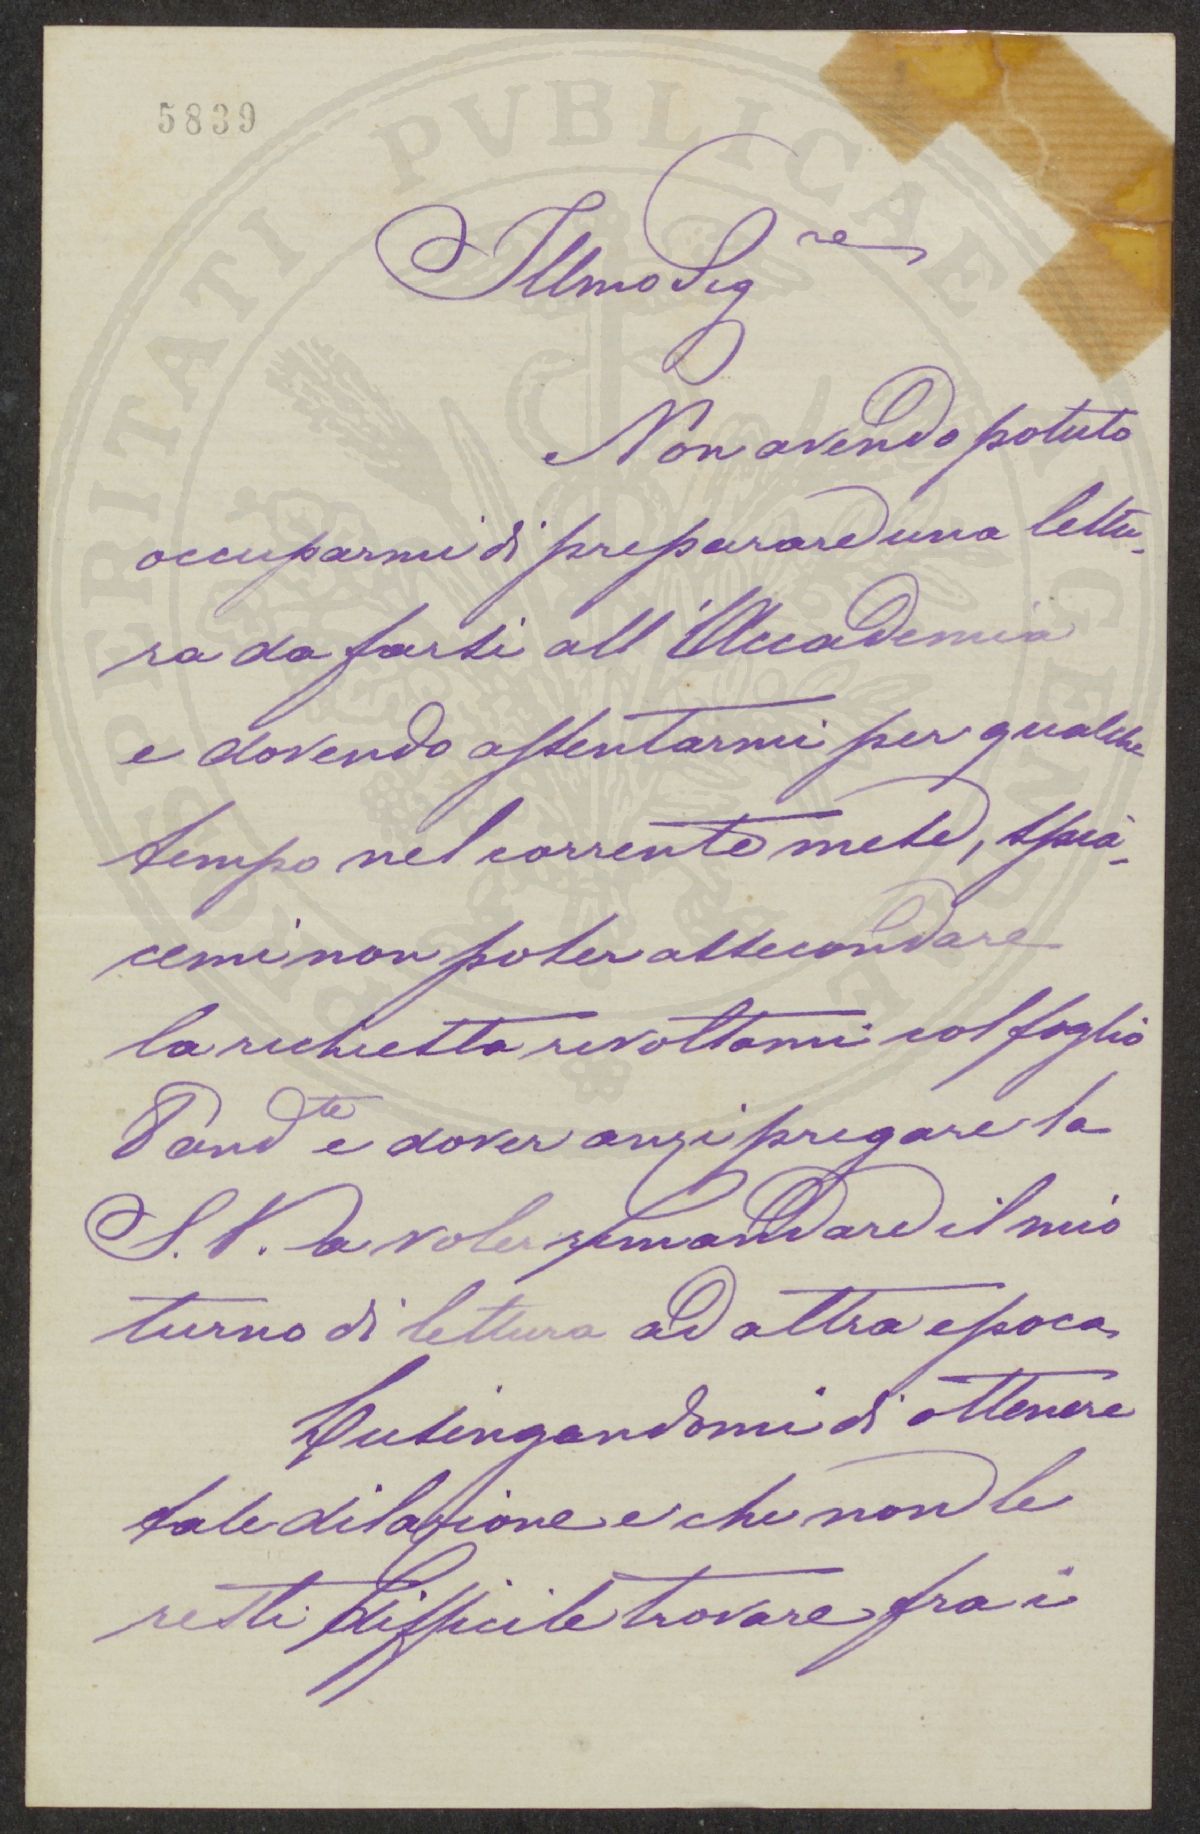 5839
Illmo Sig.re
Non avendo potuto
occuparmi di preparare una lettu-
ra da farsi all'Accademia
e dovendo assentarmi per qualche
tempo nel corrente mese, spia-
cemi non poter assecondare
la richiesta rivoltami col foglio
e dover anzi pregare la
S. V. a voler rimandare il mio
turno di lettura ad altra epoca
Lusingandomi di ottenere
tale dilazione e che non le
resti difficile trovare fra i
PROSPERITATI PVBLICAE